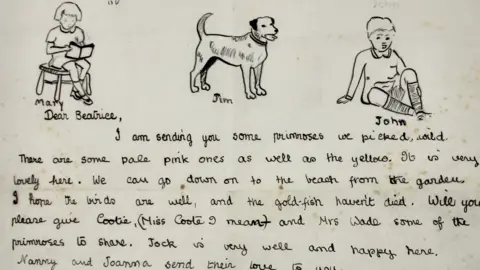 Mary
Jim
John
Dear Beatrice,
I am sending you some primroses we picked, wild.
There are some pale pink ones as well as the yellow. It is very
lovely here. We can go down on to the beach from the garden
I hope the birds are well, and the gold-fish haven't died. Will you
please give Cootie, (Miss Coote I mean) and Mrs Wade some of the
primroses to share. Jock is very well and happy here.
Nanny and Joanna send their love to you